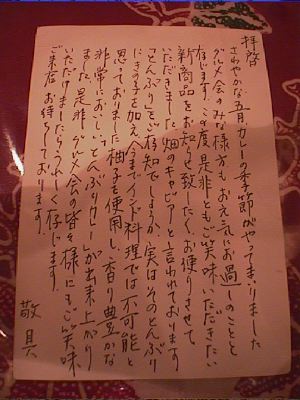 拝啓
さわやかな五月カレーの季節がやってまいりました
グルメ会のみな様方もお元気にお過しのことと
存じます。この度是非ともご笑味いただきたい
新商品をお知らせ致したくお便りさせて
いただきました。畑のキャビアーと言われております
とんぶりをご存知でしょうか。実はそのとんぶり
に
きの子を加え今までインド料理では不可能と
思っておりました柚子を使用し、香り豊かな
非常においしい「とんぶりカレー」が出来上がり
ました。是非、グルメ会の皆々様にもご笑味
いただけましたらうれしく存じます。
ご来店お待ちしております。
敬具